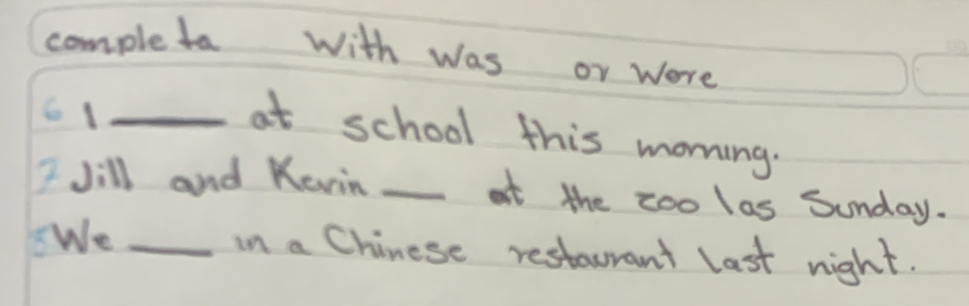 completa with was or were
6 I ___ at school this morning.
7 Jill and Kevin ___ at the zoo las Sunday.
We ___ in a Chinese restaurant last night.